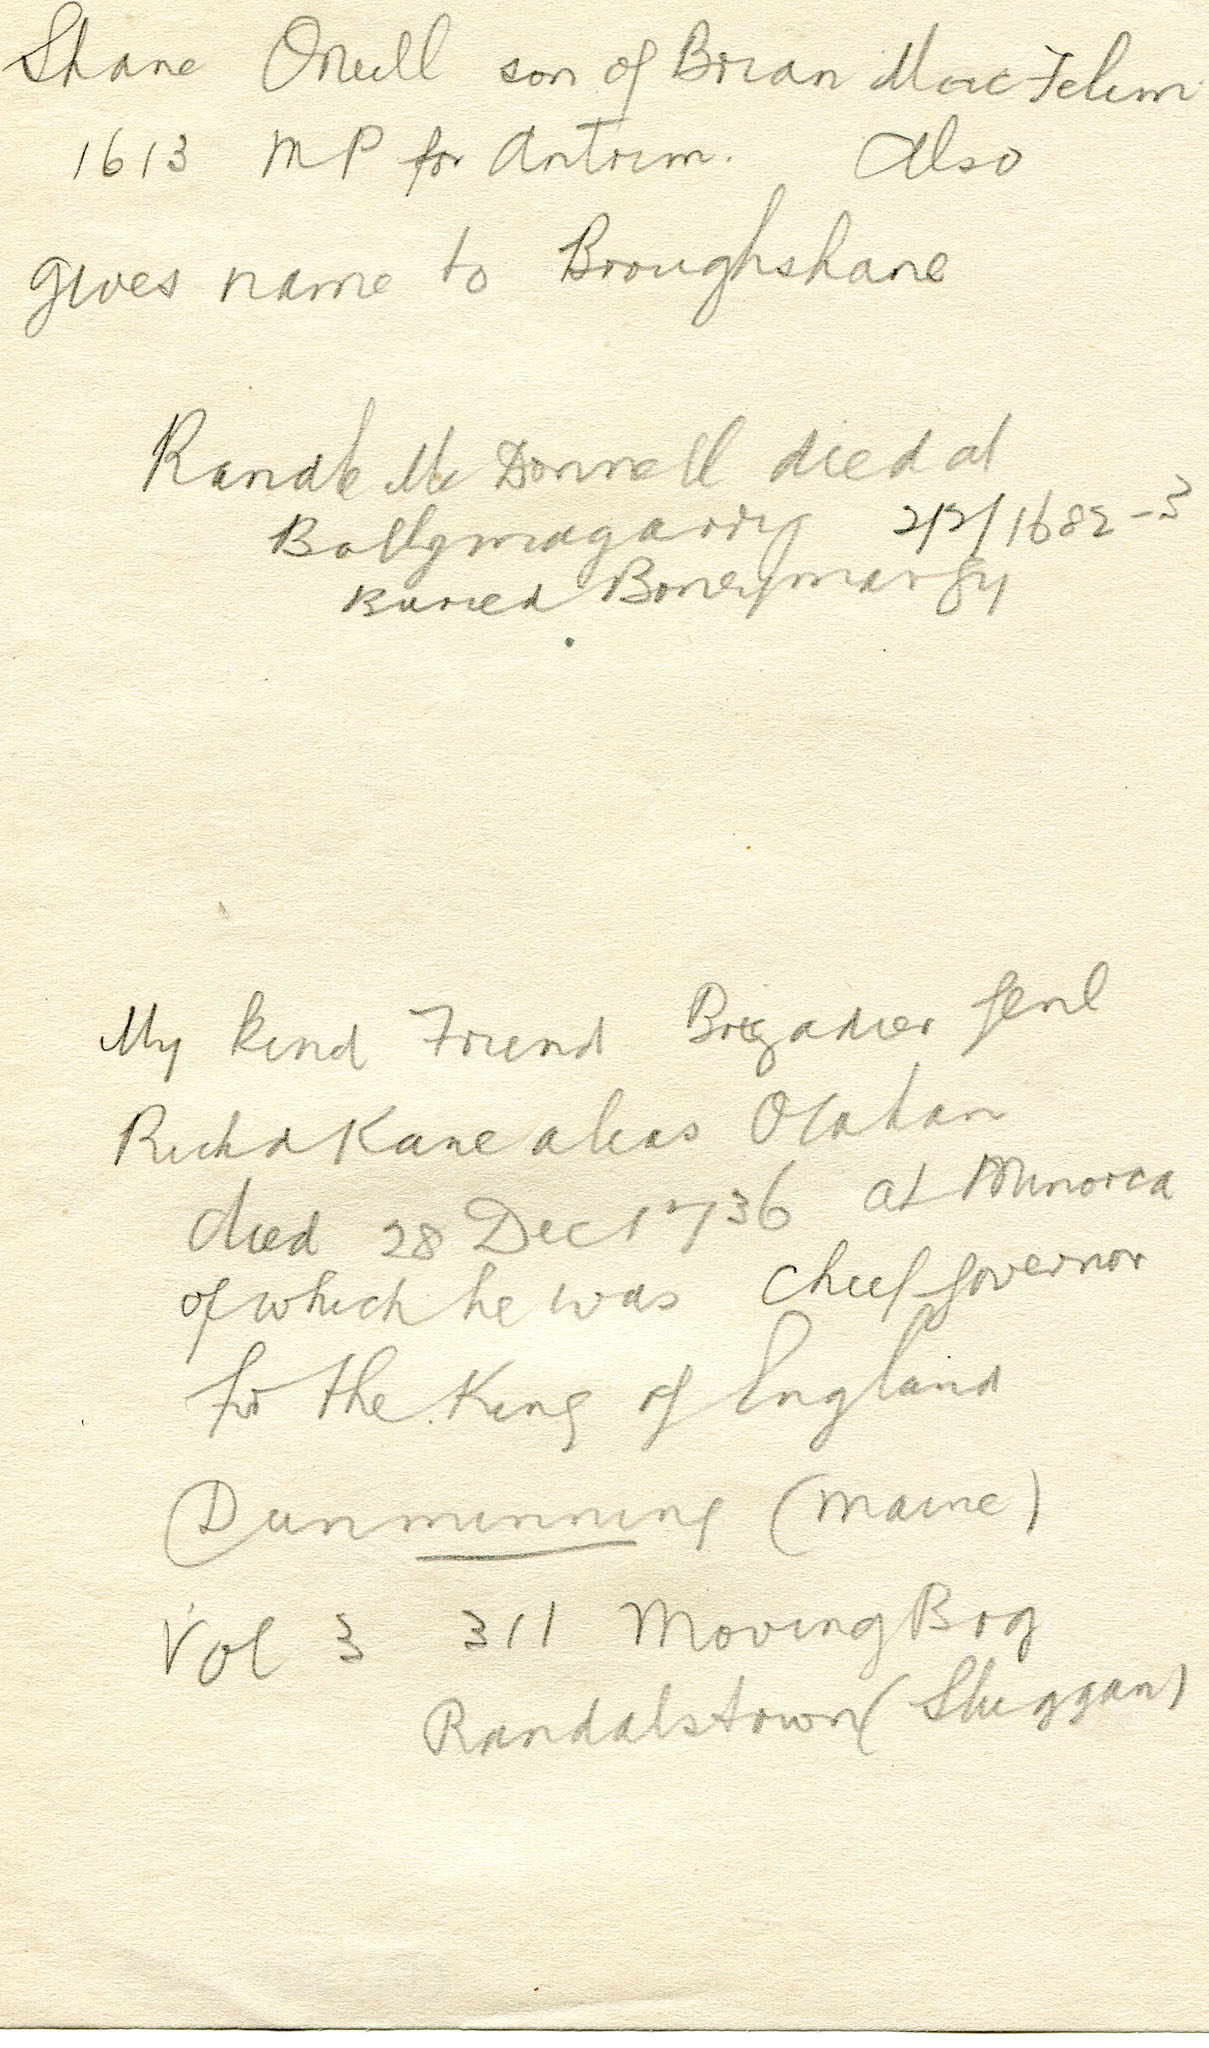 Shane Oneill son of Brian Mac Felim
1613 MP for Antrim. Also
gives name to Broughshane
Randle Mc Donnell died at
Ballymagarry 2/2/1682-3
Buried Boneymargy
My kind Friend Brigadier Genl
Richd Kane alias Ocahan
died 28 Dec 1736 at Minorca
of which he was Chief Governor
for the King of England
Dunminning (Maine)
Vol 3 311 Moving Bog
Randalstown (Sluggan)